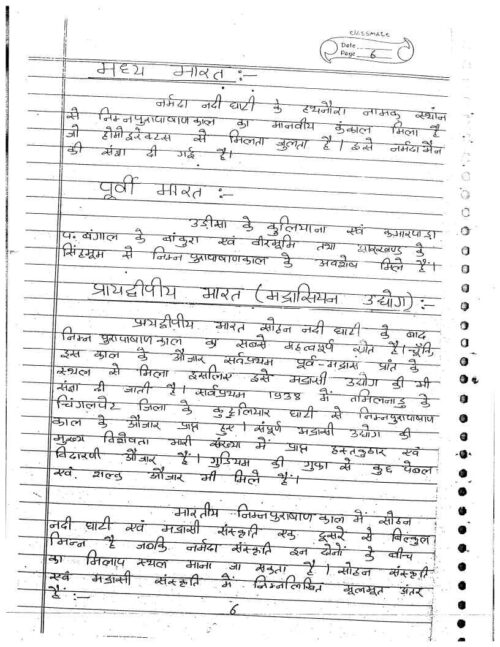 CLASSMATE
Date
Page 6
मध्य भारत :-
नर्मदा नदी घाटी के हथनौरा नामक स्थान
से निम्नपुरापाषाण काल का मानवीय कंकाल मिला है
जो होमोइरेक्टस से मिलता जुलता है। इसे नर्मदा मैन
की संज्ञा दी गई है।
पूर्वी भारत :-
उडीसा के कुलियाना एवं कमारपाडा
प. बंगाल के बांकुरा एवं वीरभूमि तथा झारखण्ड के
सिंहभूम से निम्न पुरापाषाणकाल के अवशेष मिले हैं।
प्रायद्वीपीय भारत (मद्रासियन उद्योग) :-
प्रायद्वीपीय भारत सोहन नदी घाटी के बाद
निम्न पुरापाषाण काल का सबसे महत्वपूर्ण स्रोत है। चूंकि
इस काल के औजार सर्वप्रथम पूर्व-मद्रास प्रांत के
स्थल से मिला इसलिए इसे मद्रासी उद्योग की भी
संज्ञा दी जाती है। सर्वप्रथम 1938 में तमिलनाडु के
चिंगलपेट जिला के घाटी से निम्नपुरापाषाण
काल के औजार प्राप्त हुए। संपूर्ण मद्रासी उद्योग की
मुख्य विशेषता भारी संख्या में प्राप्त हस्तकुठार एवं
विदारणी औजार हैं। गुडियम की गुफा से कुछ पेबल
एवं शल्क औजार भी मिले हैं।
भारतीय निम्नपुरापाषाण काल में सोहन
नदी घाटी एवं मद्रासी संस्कृति एक दूसरे से बिल्कुल
भिन्न है जबकि नर्मदा संस्कृति इन दोनों के बीच
का मिलाप स्थल माना जा सकता है। सोहन संस्कृति
एवं मद्रासी संस्कृति में निम्नलिखित मूलभूत अंतर
हैं :-
6